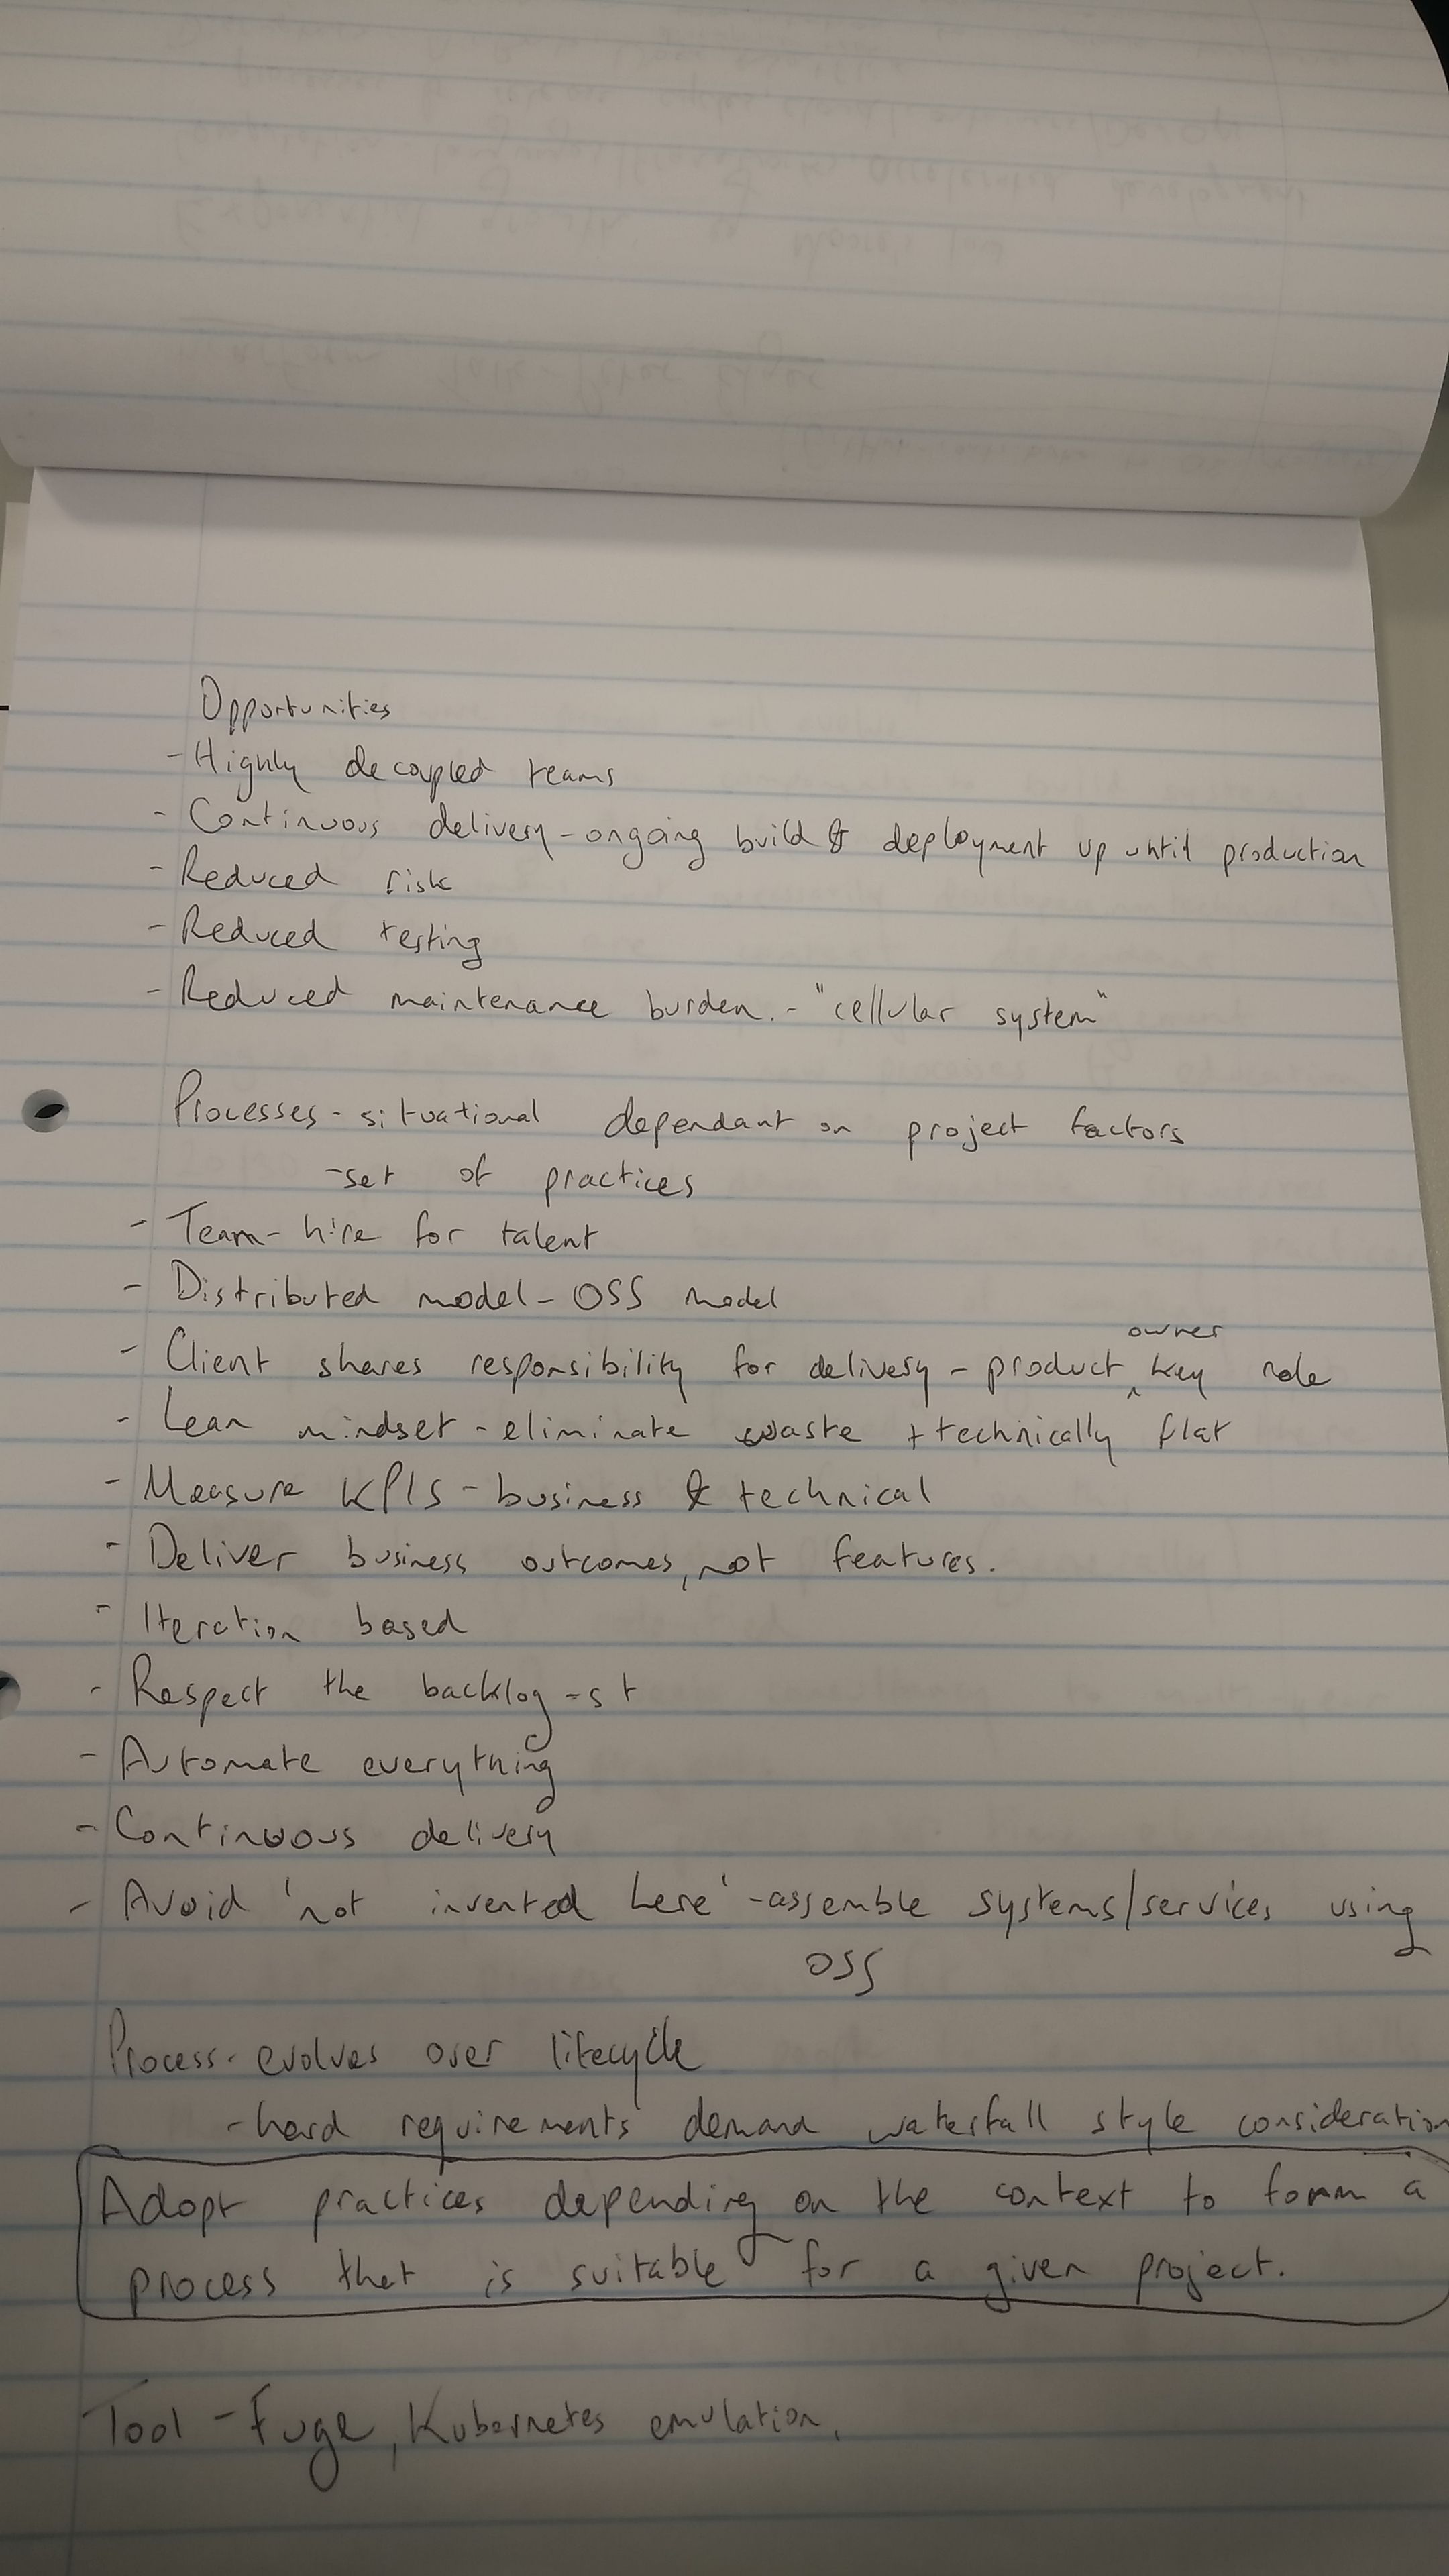 Opportunities
- Highly decoupled teams
- Continuous delivery - ongoing build & deployment up until production
- Reduced risk
- Reduced testing
- Reduced maintenance burden. - "cellular system"
Processes - situational dependant on project factors
- set of practices
- Team - hire for talent
- Distributed model - OSS model
- Client shares responsibility for delivery - product owner key role
- Lean mindset - eliminate waste + technically flat
- Measure KPIS - business & technical
- Deliver business outcomes, not features.
- Iteration based
- Respect the backlog - st
- Automate everything
- Continuous delivery
- Avoid 'not invented here' - assemble systems/services using
OSS
Process - evolves over lifecycle
- hard requirements demand waterfall style consideration
Adopt practices depending on the context to form a
process that is suitable for a given project.
Tool - Fuge, Kubernetes emulation.